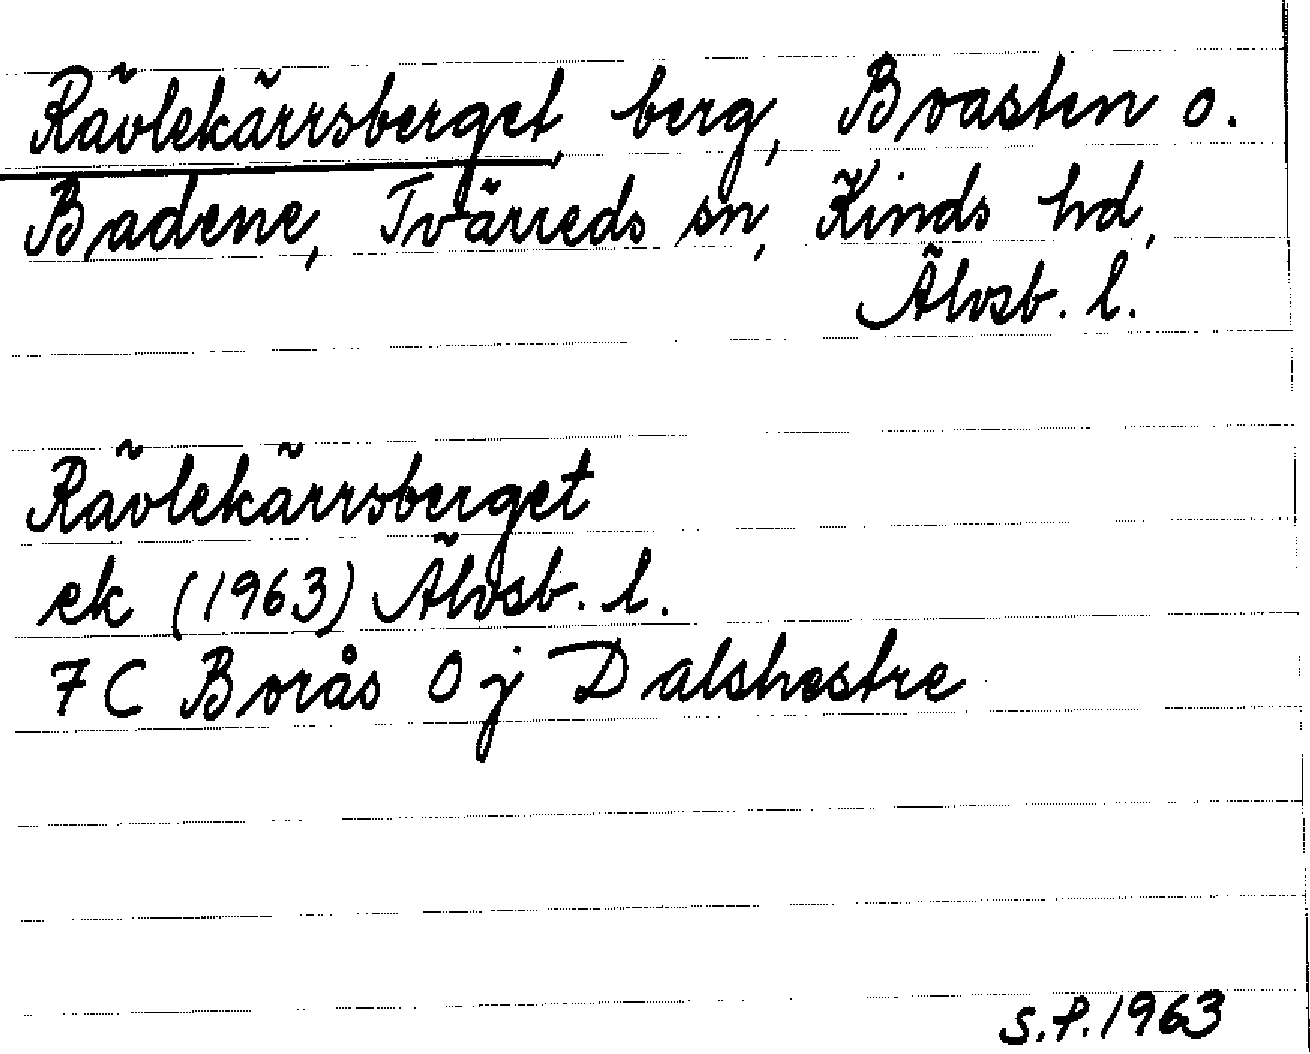 Rävlekärrsberget, berg, Broasten o.
Badene, Tvärreds sn, Kinds hd,
Älvsb. l.
Rävlekärrsberget
ek (1963) Älvsb. l.
7C Borås 0j Dalshestre
S.P. 1963